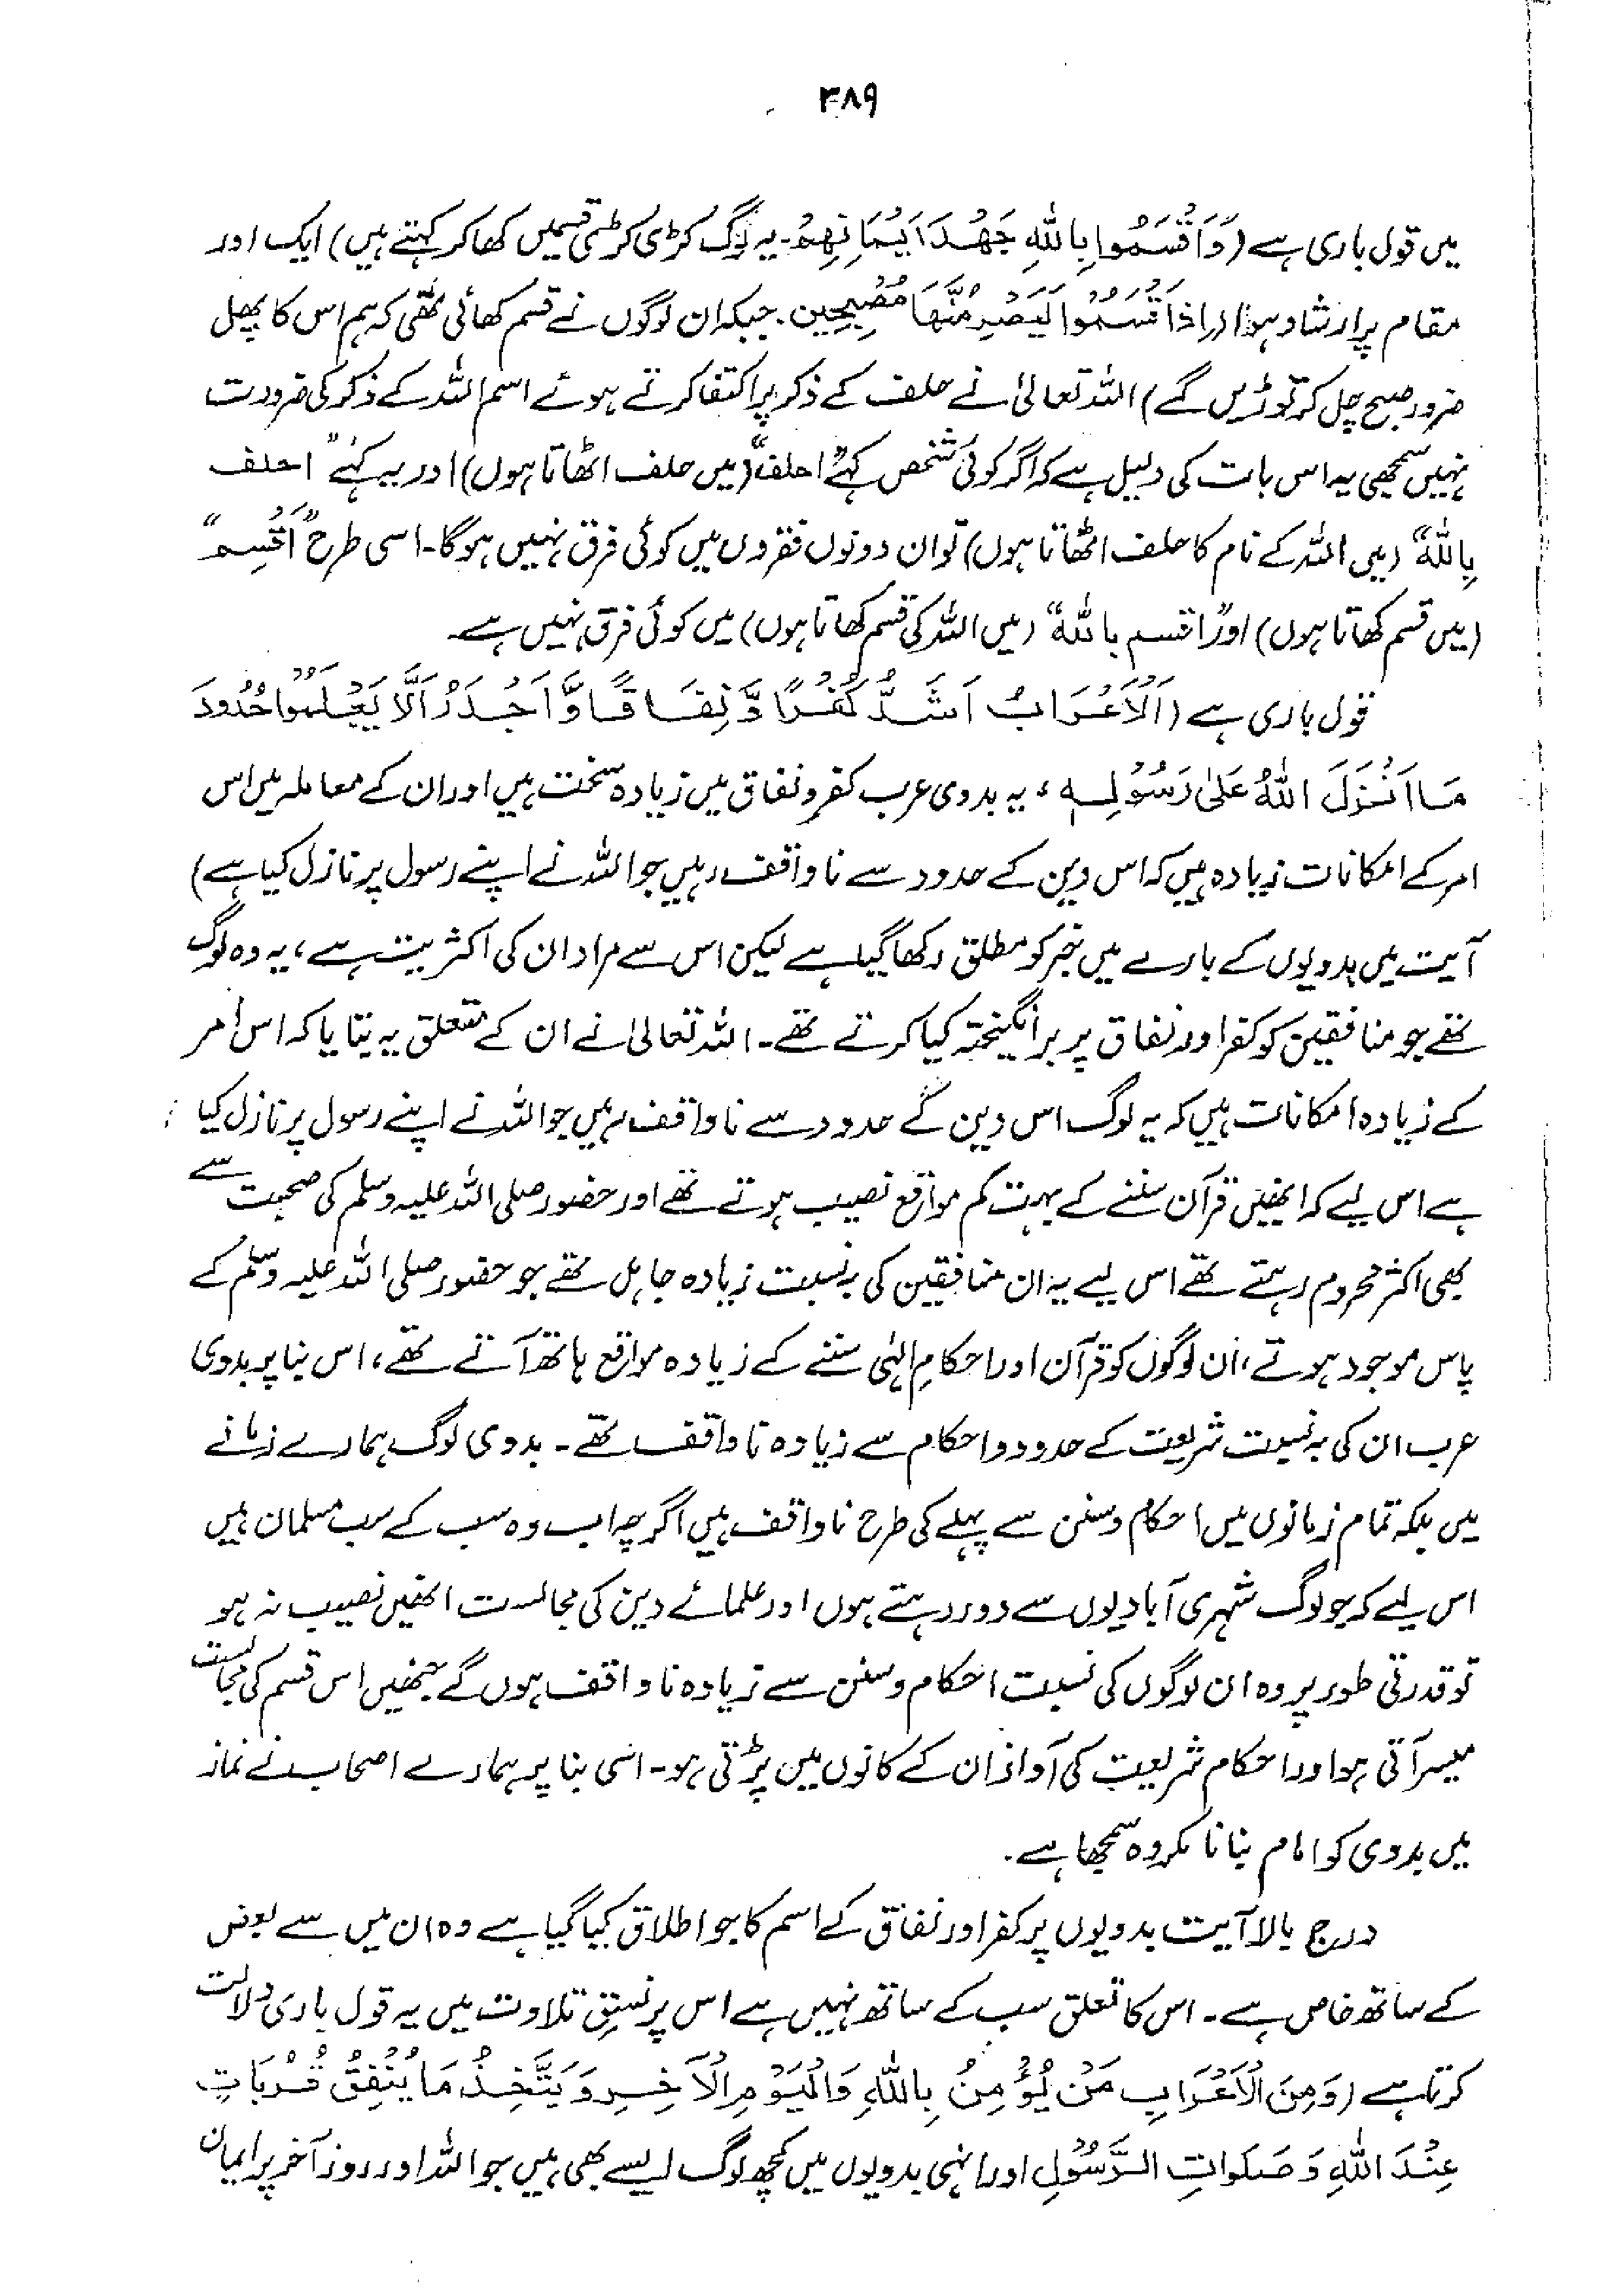 ۳۸۹
میں قول باری ہے (وَاَقْسَمُوا بِاللّٰہِ جَھْدَ اَیْمَانِھِمْ۔ یہ لوگ کڑی کڑی قسمیں کھا کر کہتے ہیں) ایک اور
مقام پر ارشاد ہوا (اِذْ اَقْسَمُوا لَیَصْرِمُنَّھَا مُصْبِحِین۔ جبکہ ان لوگوں نے قسم کھائی تھی کہ ہم اس کا پھل
ضرور صبح چل کر توڑیں گے) اللہ تعالیٰ نے حلف کے ذکر پر اکتفا کرتے ہوئے اسم اللہ کے ذکر کی ضرورت
نہیں سمجھی یہ اس بات کی دلیل ہے کہ اگر کوئی شخص کہے "احلف" (میں حلف اٹھاتا ہوں) اور یہ کہے "احلف
بِاللّٰہ" (میں اللہ کے نام کا حلف اٹھاتا ہوں) تو ان دونوں فقروں میں کوئی فرق نہیں ہوگا۔ اسی طرح "اُقْسِم"
(میں قسم کھاتا ہوں) اور "اقسم باللّٰہ" (میں اللہ کی قسم کھاتا ہوں) میں کوئی فرق نہیں ہے۔
قول باری ہے (اَلْاَعْرَابُ اَشَدُّ کُفْرًا وَّنِفَاقًا وَّاَجْدَرُ اَلَّا یَعْلَمُوا حُدُودَ
مَا اَنْزَلَ اللّٰہُ عَلٰی رَسُوْلِہٖ، یہ بدوی عرب کفر و نفاق میں زیادہ سخت ہیں اور ان کے معاملہ میں اس
امر کے امکانات زیادہ ہیں کہ اس دین کے حدود سے ناواقف رہیں جو اللہ نے اپنے رسول پر نازل کیا ہے)
آیت میں بدویوں کے بارے میں خبر کو مطلق رکھا گیا ہے لیکن اس سے مراد ان کی اکثریت ہے، یہ وہ لوگ
تھے جو منافقین کو کفر اور نفاق پر برانگیختہ کیا کرتے تھے۔ اللہ تعالیٰ نے ان کے متعلق یہ بتایا کہ اس امر
کے زیادہ امکانات ہیں کہ یہ لوگ اس دین کے حدود سے ناواقف رہیں جو اللہ نے اپنے رسول پر نازل کیا
ہے اس لیے کہ انھیں قرآن سننے کے بہت کم مواقع نصیب ہوتے تھے اور حضور صلی اللہ علیہ وسلم کی صحبت سے
بھی اکثر محروم رہتے تھے اس لیے یہ ان منافقین کی بہ نسبت زیادہ جاہل تھے جو حضور صلی اللہ علیہ وسلم کے
پاس موجود ہوتے، ان لوگوں کو قرآن اور احکام الہٰی سننے کے زیادہ مواقع ہاتھ آتے تھے، اس بنا پر بدوی
عرب ان کی بہ نسبت شریعت کے حدود و احکام سے زیادہ ناواقف تھے۔ بدوی لوگ ہمارے زمانے
میں بلکہ تمام زمانوں میں احکام و سنن سے پہلے کی طرح ناواقف ہیں اگرچہ اب وہ سب کے سب مسلمان ہیں
اس لیے کہ جو لوگ شہری آبادیوں سے دور رہتے ہوں اور علمائے دین کی مجالست انھیں نصیب نہ ہو
تو قدرتی طور پر وہ ان لوگوں کی نسبت احکام و سنن سے زیادہ ناواقف ہوں گے جنھیں اس قسم کی مجالست
میسر آتی ہو اور احکام شریعت کی آواز ان کے کانوں میں پڑتی ہو۔ اسی بنا پر ہمارے اصحاب نے نماز
میں بدوی کو امام بنانا مکروہ سمجھا ہے۔
درج بالا آیت بدویوں پر کفر اور نفاق کے اسم کا جو اطلاق کیا گیا ہے وہ ان میں سے بعض
کے ساتھ خاص ہے۔ اس کا تعلق سب کے ساتھ نہیں ہے اس پر نسقِ تلاوت میں یہ قول باری دلالت
کرتا ہے (وَمِنَ الْاَعْرَابِ مَنْ یُؤْمِنُ بِاللّٰہِ وَالْیَوْمِ الْاٰخِرِ وَیَتَّخِذُ مَا یُنْفِقُ قُرُبَاتٍ
عِنْدَ اللّٰہِ وَصَلَوَاتِ الرَّسُوْلِ اور انہی بدویوں میں کچھ لوگ ایسے بھی ہیں جو اللہ اور روز آخر پر ایمان